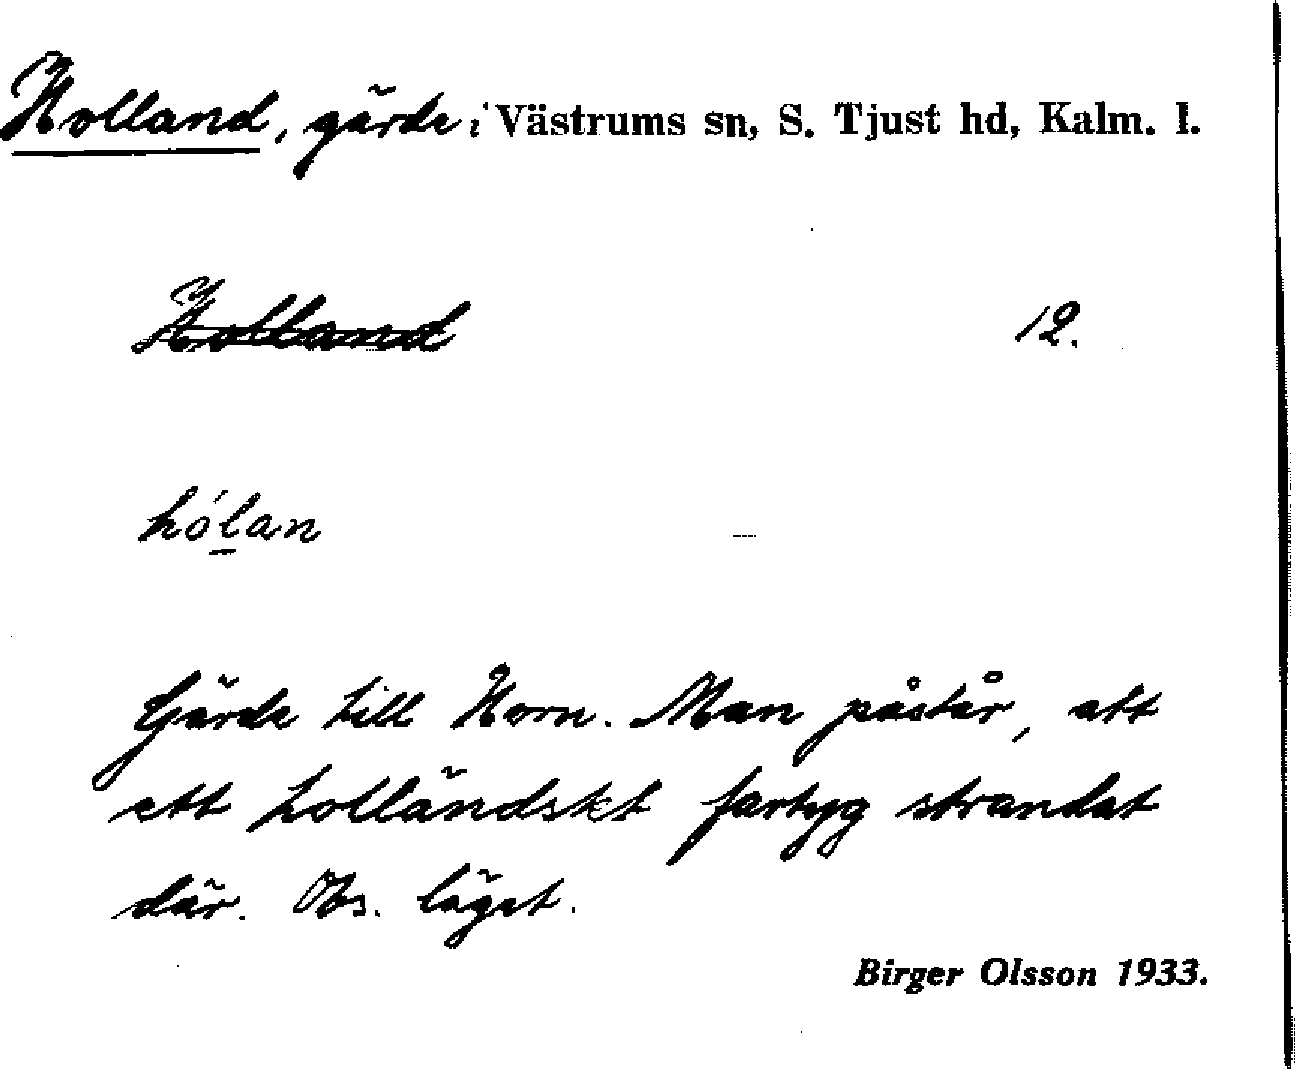 Holland, gärde i Västrums sn, S. Tjust hd, Kalm. l.
Holland 12.
hólan
Gärde till Horn. Man påstår, att
ett holländskt fartyg strandat
där. Obs. läget.
Birger Olsson 1933.